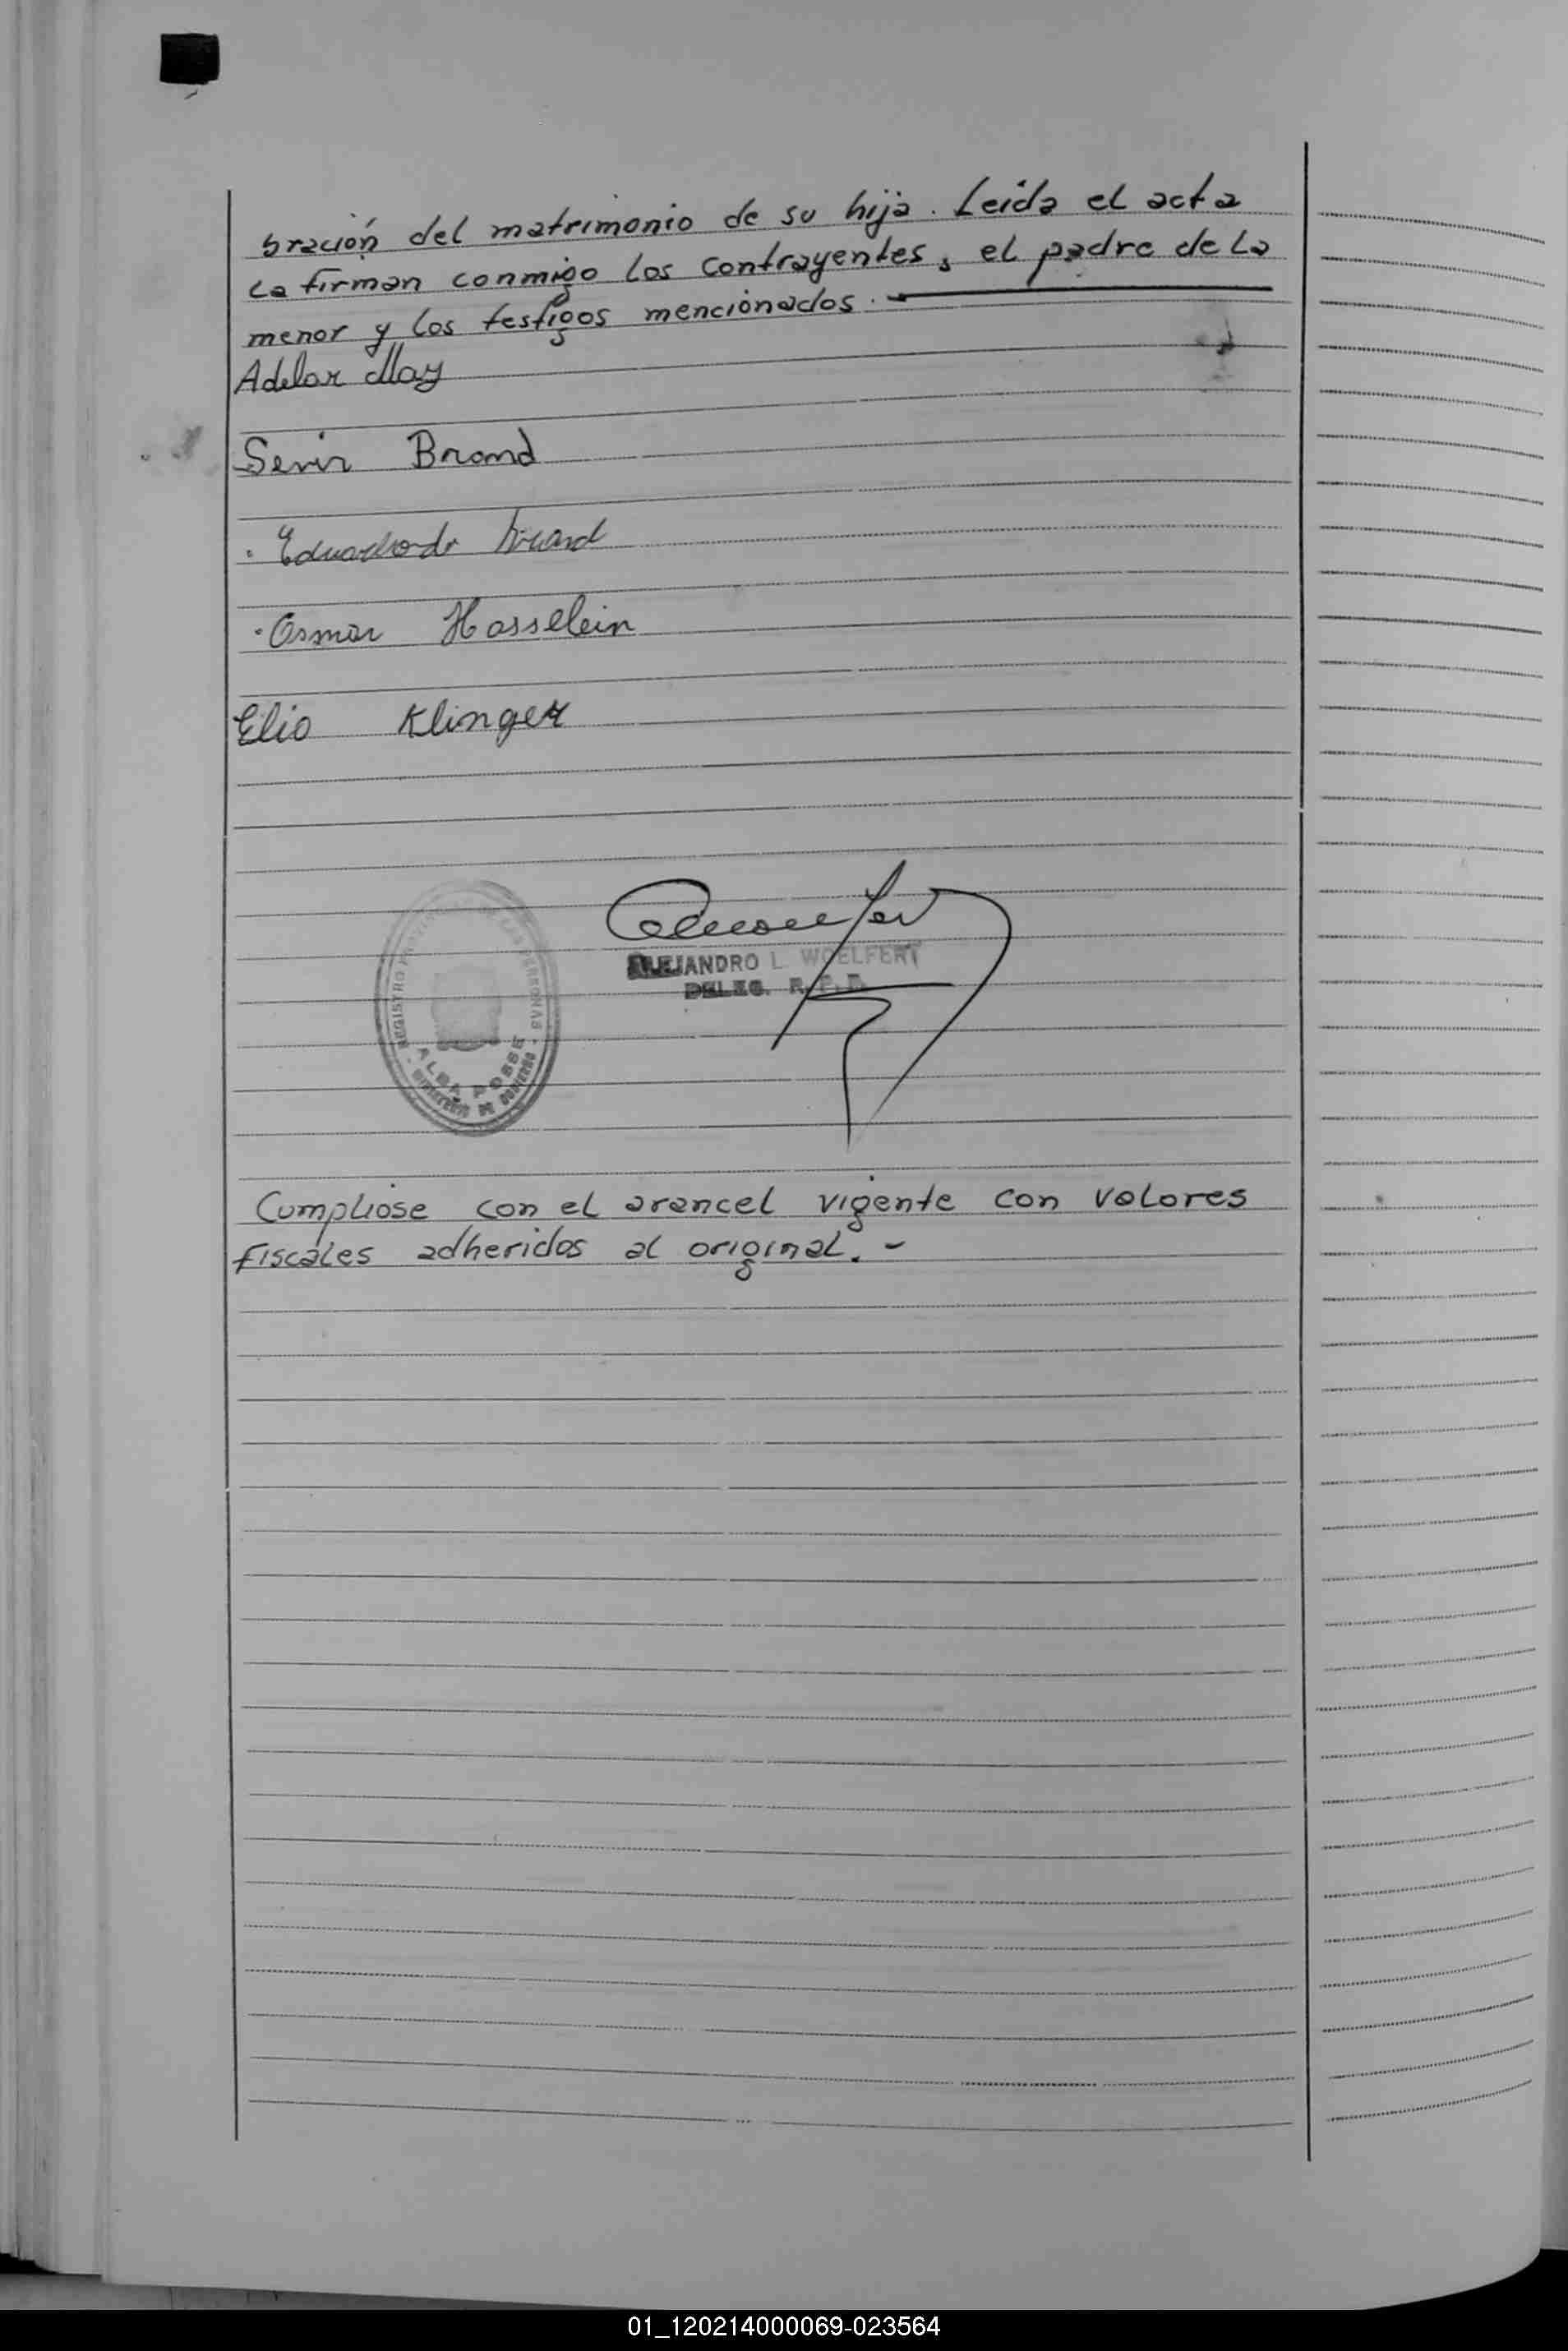 bración del matrimonio de su hija. Leida el acta
la firman conmigo los contrayentes, el padre de la
menor y los testigos mencionados.
Adelar May
Senir Brand
Brand
Osmar Hasselein
Elio Klinger
ALEJANDRO L. WOELFERT
DELEG. R. P. P.
REGISTRO PROVINCIAL DE LAS PERSONAS
ALBA POSSE
MINISTERIO DE GOBIERNO
Cumpliose con el arancel vigente con valores
fiscales adheridos al original. -
01_120214000069-023564